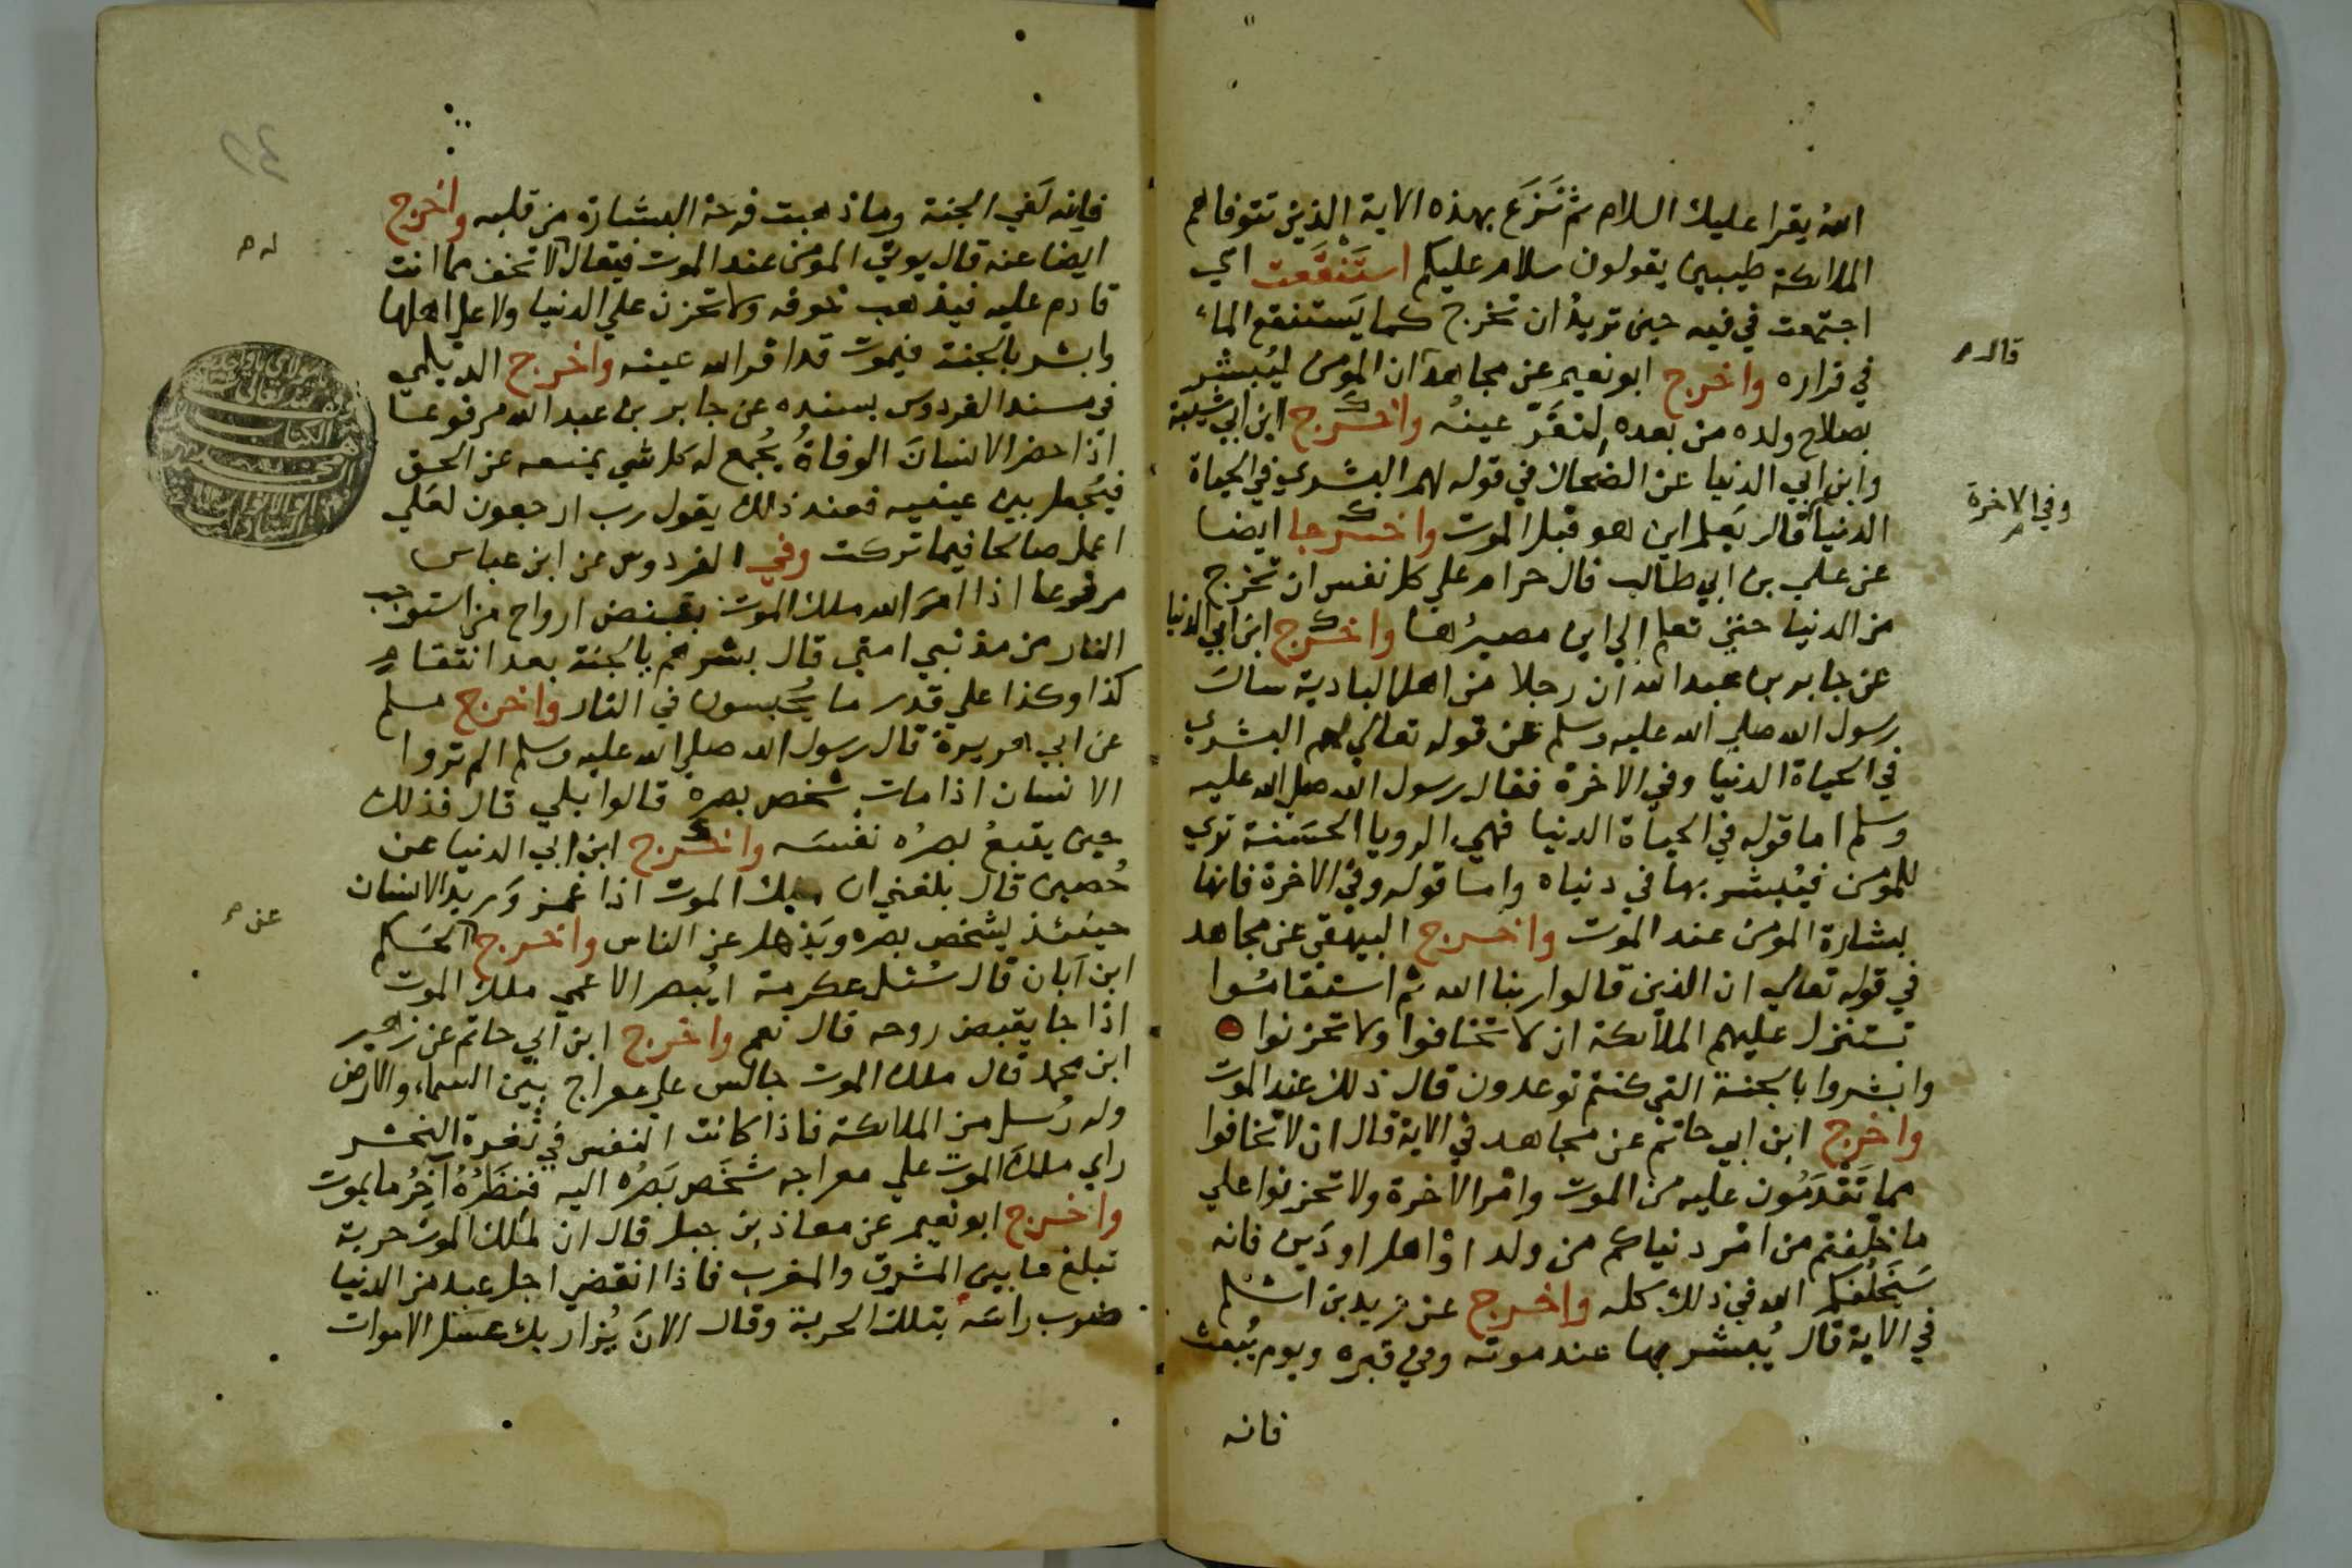 الله يقرا عليك السلام ثم نَزَع بهذه الاية الذين تتوفاهم
الملائكة طيبين يقولون سلام عليكم استَنْقَعت اي
اجتمعت في فيه حين تريد ان تخرج كما يَستنقع الماء
في قراره واخرج ابو نعيم عن مجاهد ان المومن ليُبشر
قال
بصلاح ولده من بعده لتقَرّ عينُه واخرج ابن ابي شيبة
وابن ابي الدنيا عن الضحاك في قوله لهم البشري في الحياة
وفي الاخرة
الدنيا قال يَعلم اين هو قبل الموت واخرجا ايضا
عن علي بن ابي طالب قال حرام علي كل نفس ان تخرج
من الدنيا حتي تعلم الي اين مصيرُها واخرج ابن ابي الدنيا
عن جابر بن عبد الله ان رجلا من اهل البادية سال
رسول الله صلي الله عليه وسلم عن قوله تعالي لهم البشري
في الحياة الدنيا وفي الاخرة فقال رسول الله صلي الله عليه
وسلم اما قوله في الحياة الدنيا فهي الرويا الحسَنة تري
للمومن فيُبشر بها في دنياه واما قوله وفي الاخرة فانها
بشارة المومن عند الموت واخرج البيهقي عن مجاهد
في قوله تعالي ان الذين قالوا ربنا الله ثم استقامُوا
تتنزل عليهم الملائكة ان لا تخافوا ولا تحزنوا
وابشروا بالجنة التي كنتم توعدون قال ذلك عند الموت
واخرج ابن ابي حاتم عن مجاهد في الاية قال ان لا تخافوا
مما تَقْدَمُون عليه من الموت وامر الاخرة ولا تحزنوا علي
ما خلّفتم من امر دنياكم من ولد او اهل او دَين فانه
سَيَخلُفكم الله في ذلك كله واخرج عن زيد بن اسلم
في الاية قال يُبشر بها عند موته وفي قبره ويوم يُبعث
فانه
فانه لَفي الجنة وما ذهبت فرحة البشارة من قلبه واخرج
ايضا عنه قال يوتي المومن عند الموت فيقال لا تخف مما انت
له
قادم عليه فيذهب خوفه ولا تحزن علي الدنيا ولا علي اهلها
وابشر بالجنة فيموت قد اقر الله عينه واخرج الديلمي
في مسند الفردوس بسنده عن جابر بن عبد الله مرفوعا
اذا حضر الانسانَ الوفاةُ يُجمع له كل شي يمنعه عن الحق
فيُجعل بين عينيه فعند ذلك يقول رب ارجعون لعلي
اعمل صالحا فيما تركت وفي الفردوس عن ابن عباس
مرفوعا اذا امَرَ الله ملك الموت بقبض ارواح من استوجب
النار من مذنبي امتي قال بشرهم بالجنة بعد انتقام
كذا وكذا علي قدر ما يُحبسون في النار واخرج مسلم
عن ابي هريرة قال رسول الله صلي الله عليه وسلم الم تروا
الانسان اذا مات شخص بصره قالوا بلي قال فذلك
حين يتبعُ بصرُه نفسَه واخرج ابن ابي الدنيا عن
حُصين قال بلغني ان ملك الموت اذا غمز وَريد الانسان
حينئذ يشخص بصره ويَذهل عن الناس واخرج الحكم
عن
ابن ابان قال سُئل عكرمة ايُبصر الاعمي ملك الموت
اذا جا يقبض روحه قال نعم واخرج ابن ابي حاتم عن زهير
ابن محمد قال ملك الموت جالس علي معراج بين السماء والارض
وله رُسل من الملائكة فاذا كانت النفس في ثغرة النحر
راي ملكَ الموت علي معراجه شَخَص بَصَرُه اليه فنَظَرُهُ آخِرُ ما يموت
واخرج ابو نعيم عن معاذ بن جبل قال ان لملك الموت حربة
تبلغ ما بين المشرق والمغرب فاذا انقضي اجل عبد من الدنيا
ضرب راسَه بتلك الحربة وقال الان يُزار بك عسكر الاموات